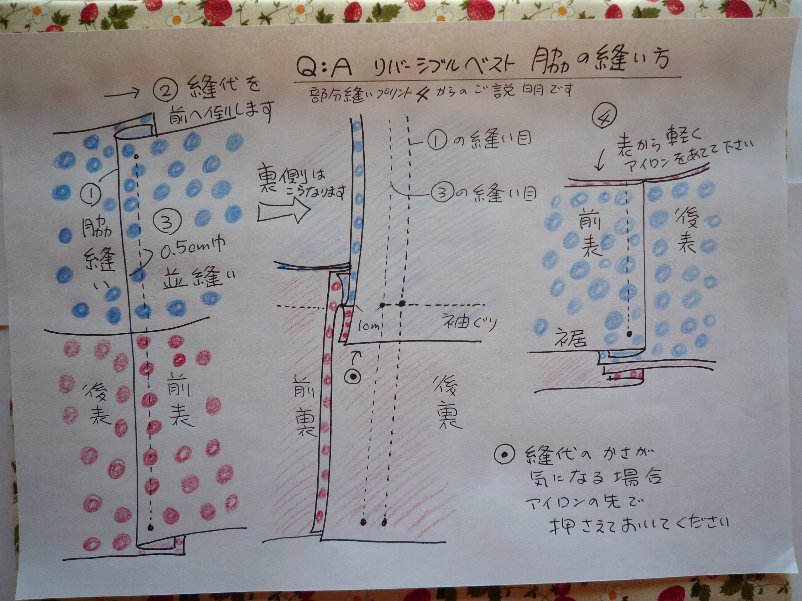 Q:A リバーシブルベスト 脇の縫い方
部分縫いプリント4からのご説明です
→ ② 縫代を
前へ倒します
①
脇縫い
③
0.5cm巾
並縫い
後表
前表
裏側は
こうなります
①の縫い目
③の縫い目
1cm
袖ぐり
前裏
後裏
④
表から軽く
アイロンをあてて下さい
前表
後表
裾
⦿ 縫代のかさが
気になる場合
アイロンの先で
押さえておいてください